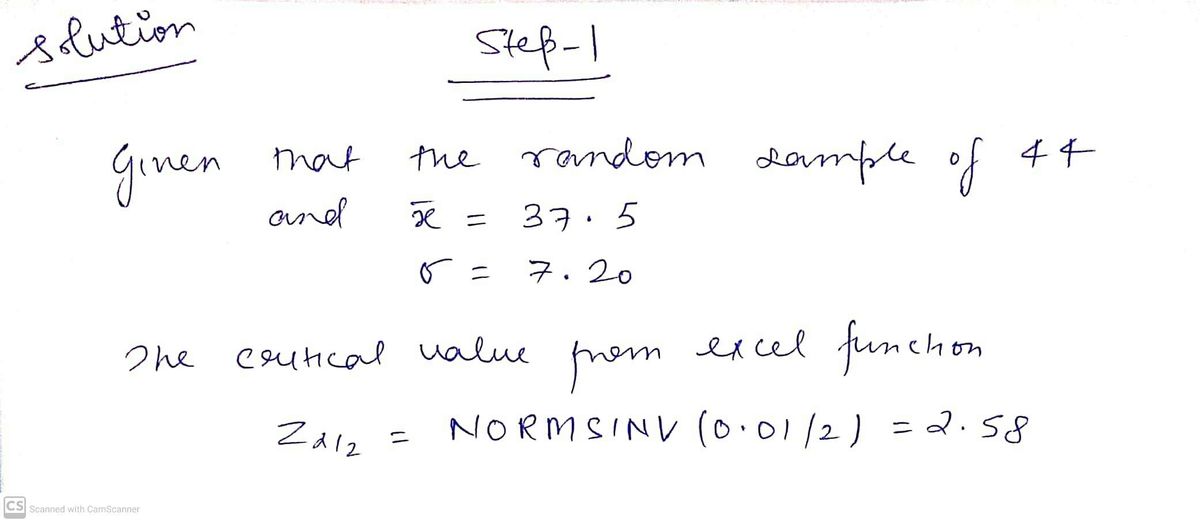 solution
Step-1
Given that the random sample of 44
and x̄ = 37.5
σ = 7.20
The critical value from excel function
Zα/2 = NORMSINV (0.01/2) = 2.58
CS Scanned with CamScanner